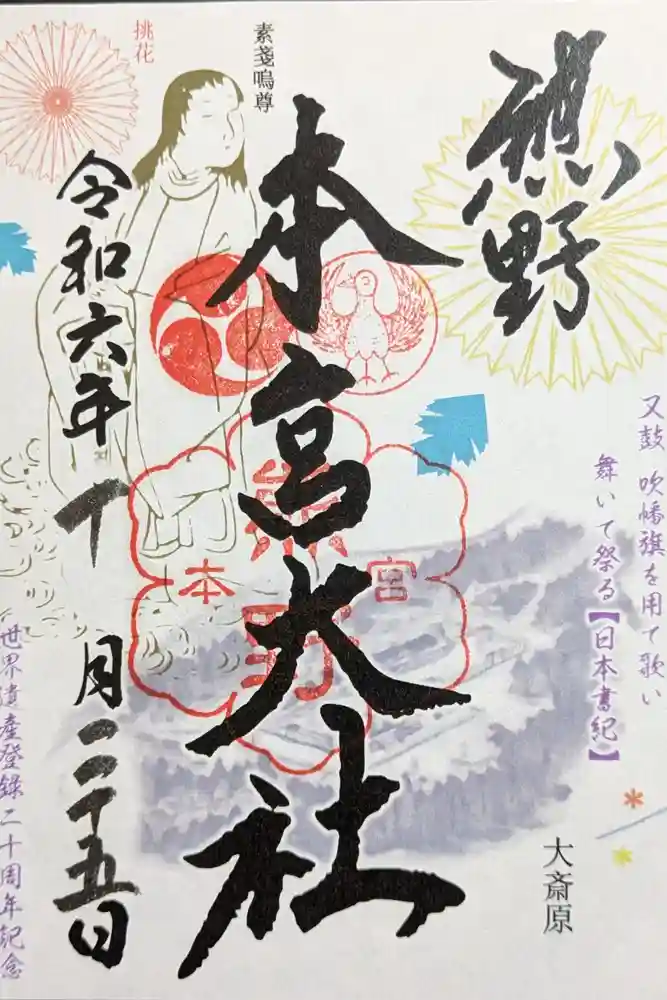 熊野
本宮大社
令和六年十月二十五日
挑花
素戔嗚尊
熊野
本宮
又鼓 吹幡旗を用て歌い
舞いて祭る【日本書紀】
大斎原
世界遺産登録二十周年記念